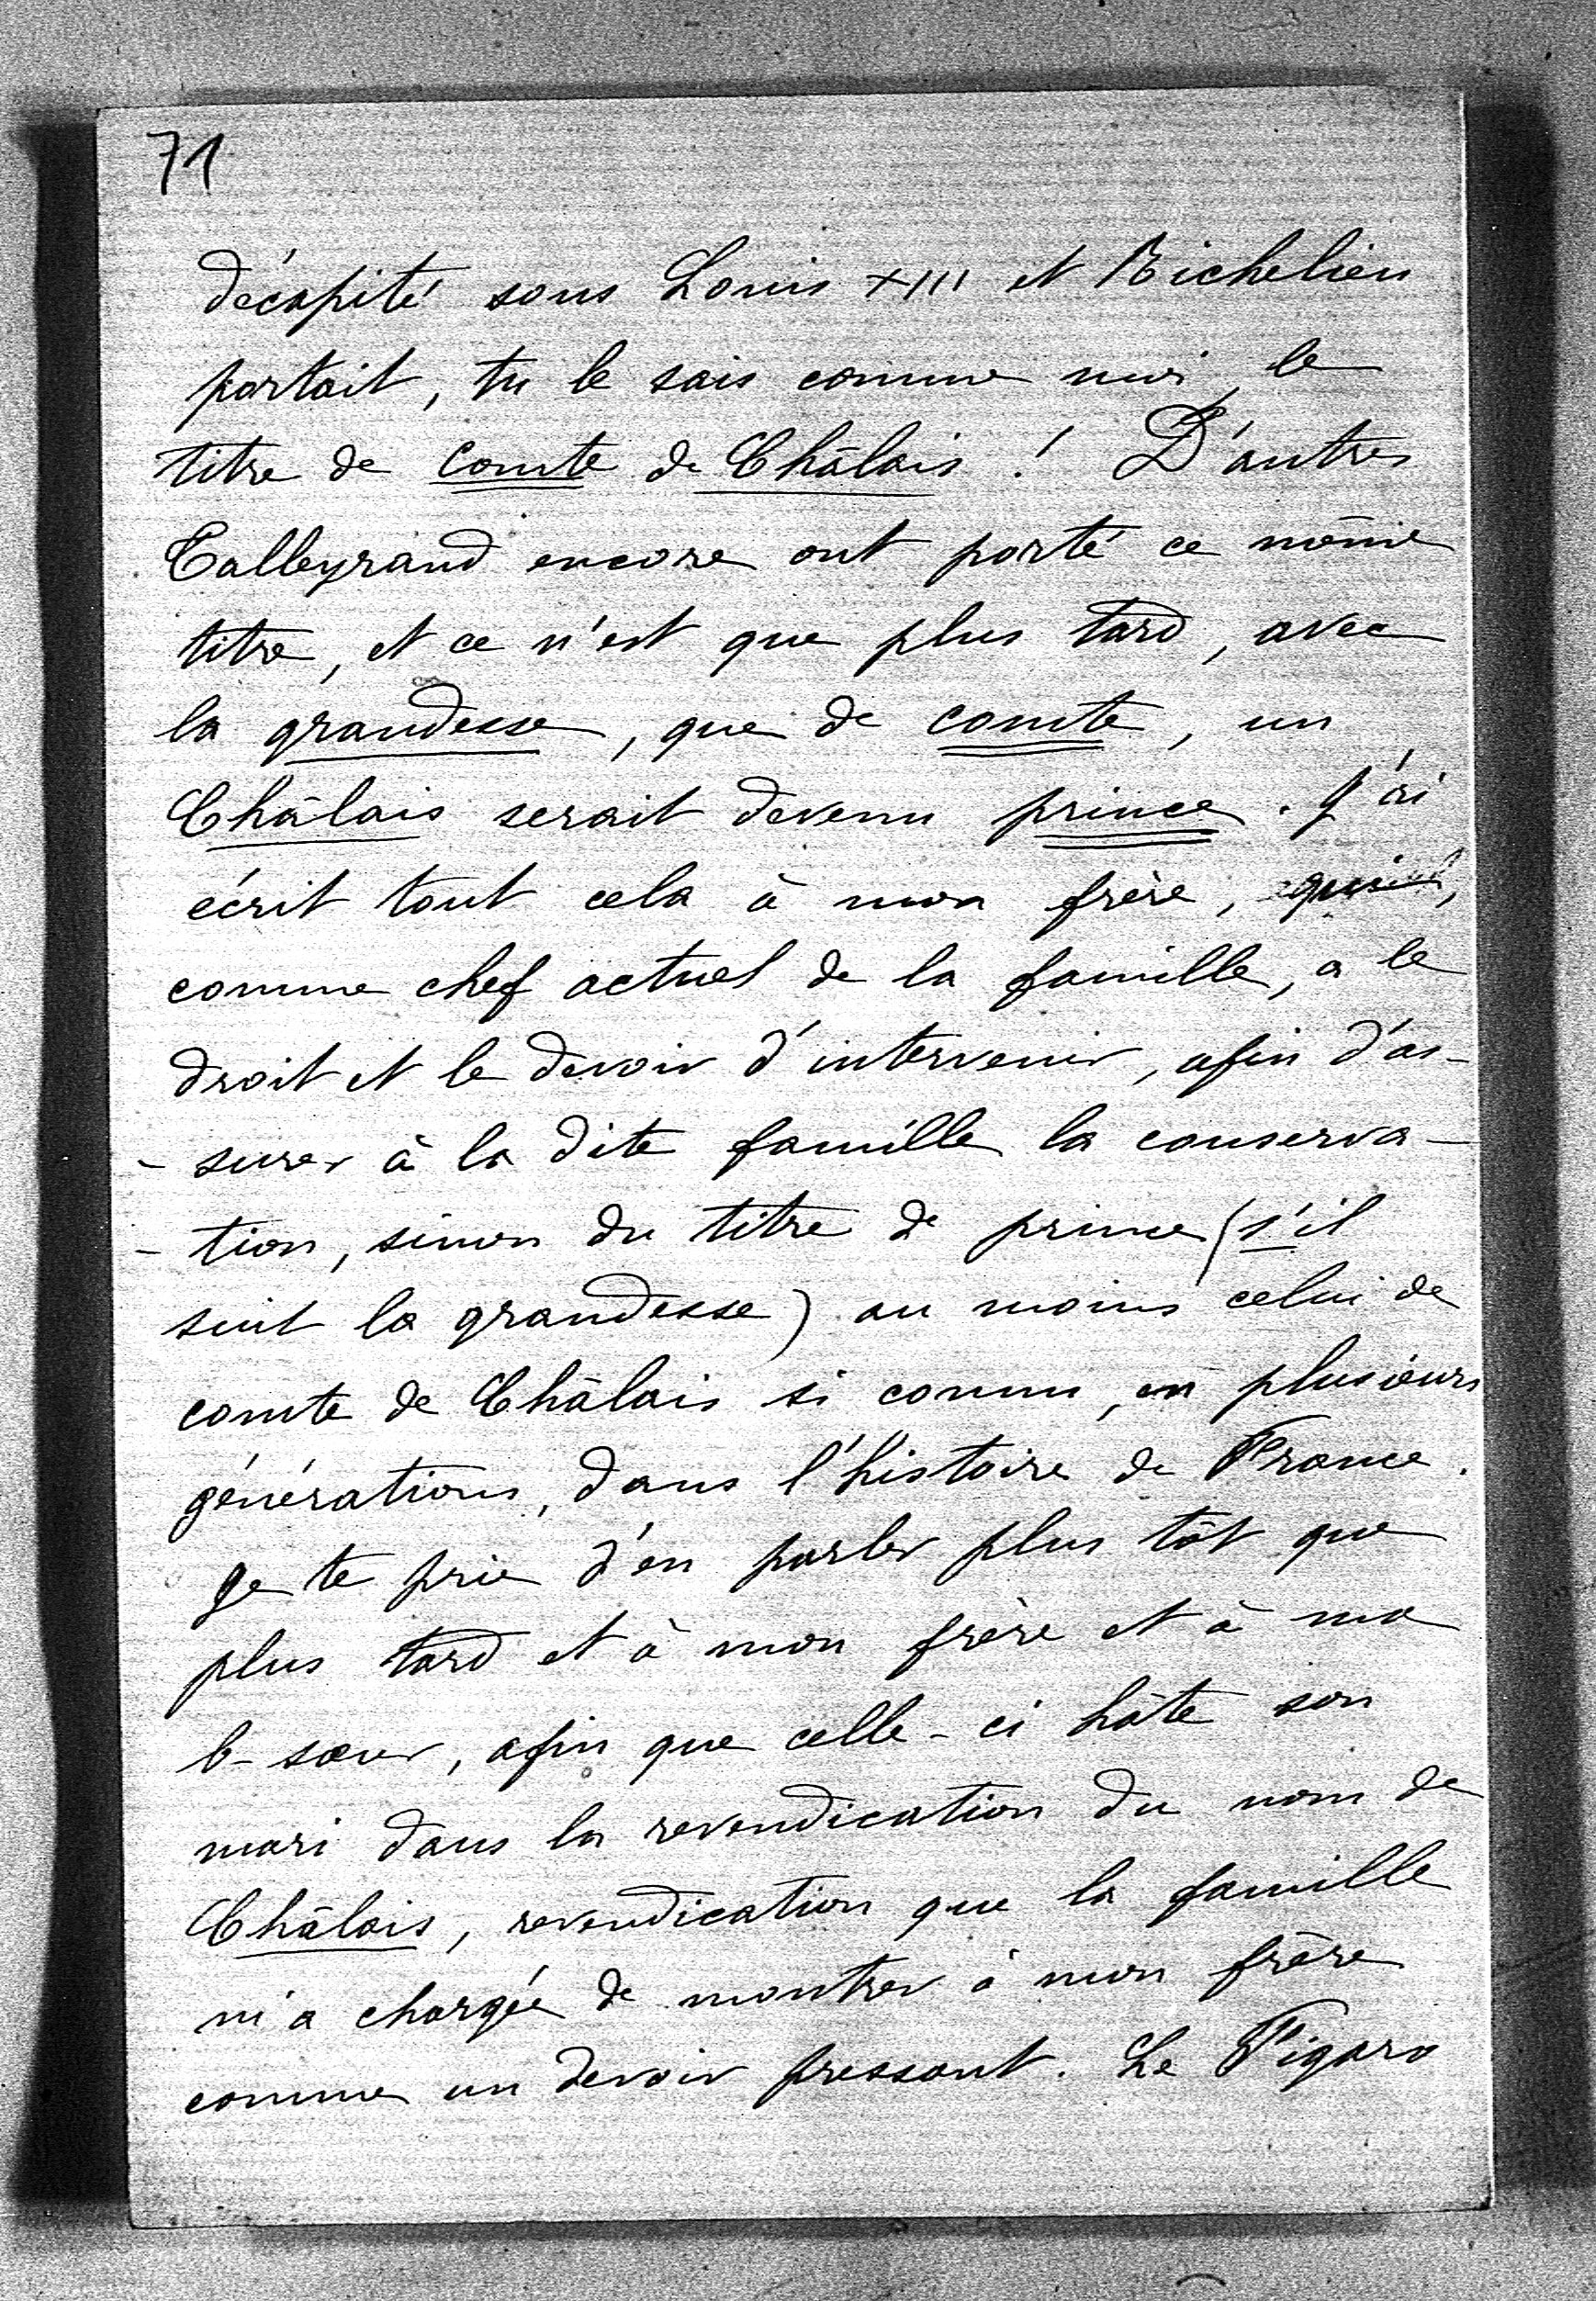 71
décapité sous Louis XIII et Richelieu
portait, tu le sais comme moi, le
titre de comte de Châlais ! D'autres
Talleyrand encore ont porté ce même
titre, et ce n'est que plus tard, avec
la grandesse, que de comte, un
Châlais serait devenu prince. J'ai
écrit tout cela à mon frère, qui,
comme chef actuel de la famille, a le
droit et le devoir d'intervenir, afin d'as-
- surer à la dite famille la conserva-
- tion, sinon du titre de prince (s'il
suit la grandesse) au moins celui de
comte de Châlais si connu, en plusieurs
générations, dans l'histoire de France.
Je te prie d'en parler plus tôt que
plus tard et à mon frère et à ma
b-sœur, afin que celle-ci hâte son
mari dans la revendication du nom de
Châlais, revendication que la famille
m'a chargée de montrer à mon frère
comme un devoir pressant. Le Figaro